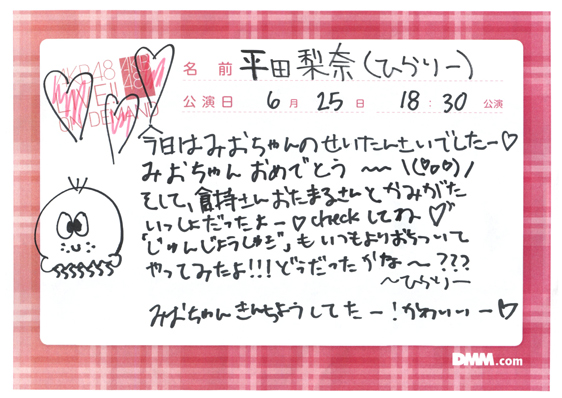 AKB48
LIVE!! ON DEMAND
名 前 平田梨奈(ひらりー)
公演日 6月 25日 18:30 公演
今日はみおちゃんのせいたんさいでしたー♡
みおちゃん おめでとう 〜〜 \(♡o♡)/
そして、倉持さんおたまるさんとかみがた
いっしょだったよー♡checkしてね♡
「じゅんじょうしゅぎ」もいつもよりおちついて
やってみたよ!!!どうだったかな〜???
〜ひらりー
みおちゃんきんちょうしてたー!かわいいー♡
DMM.com